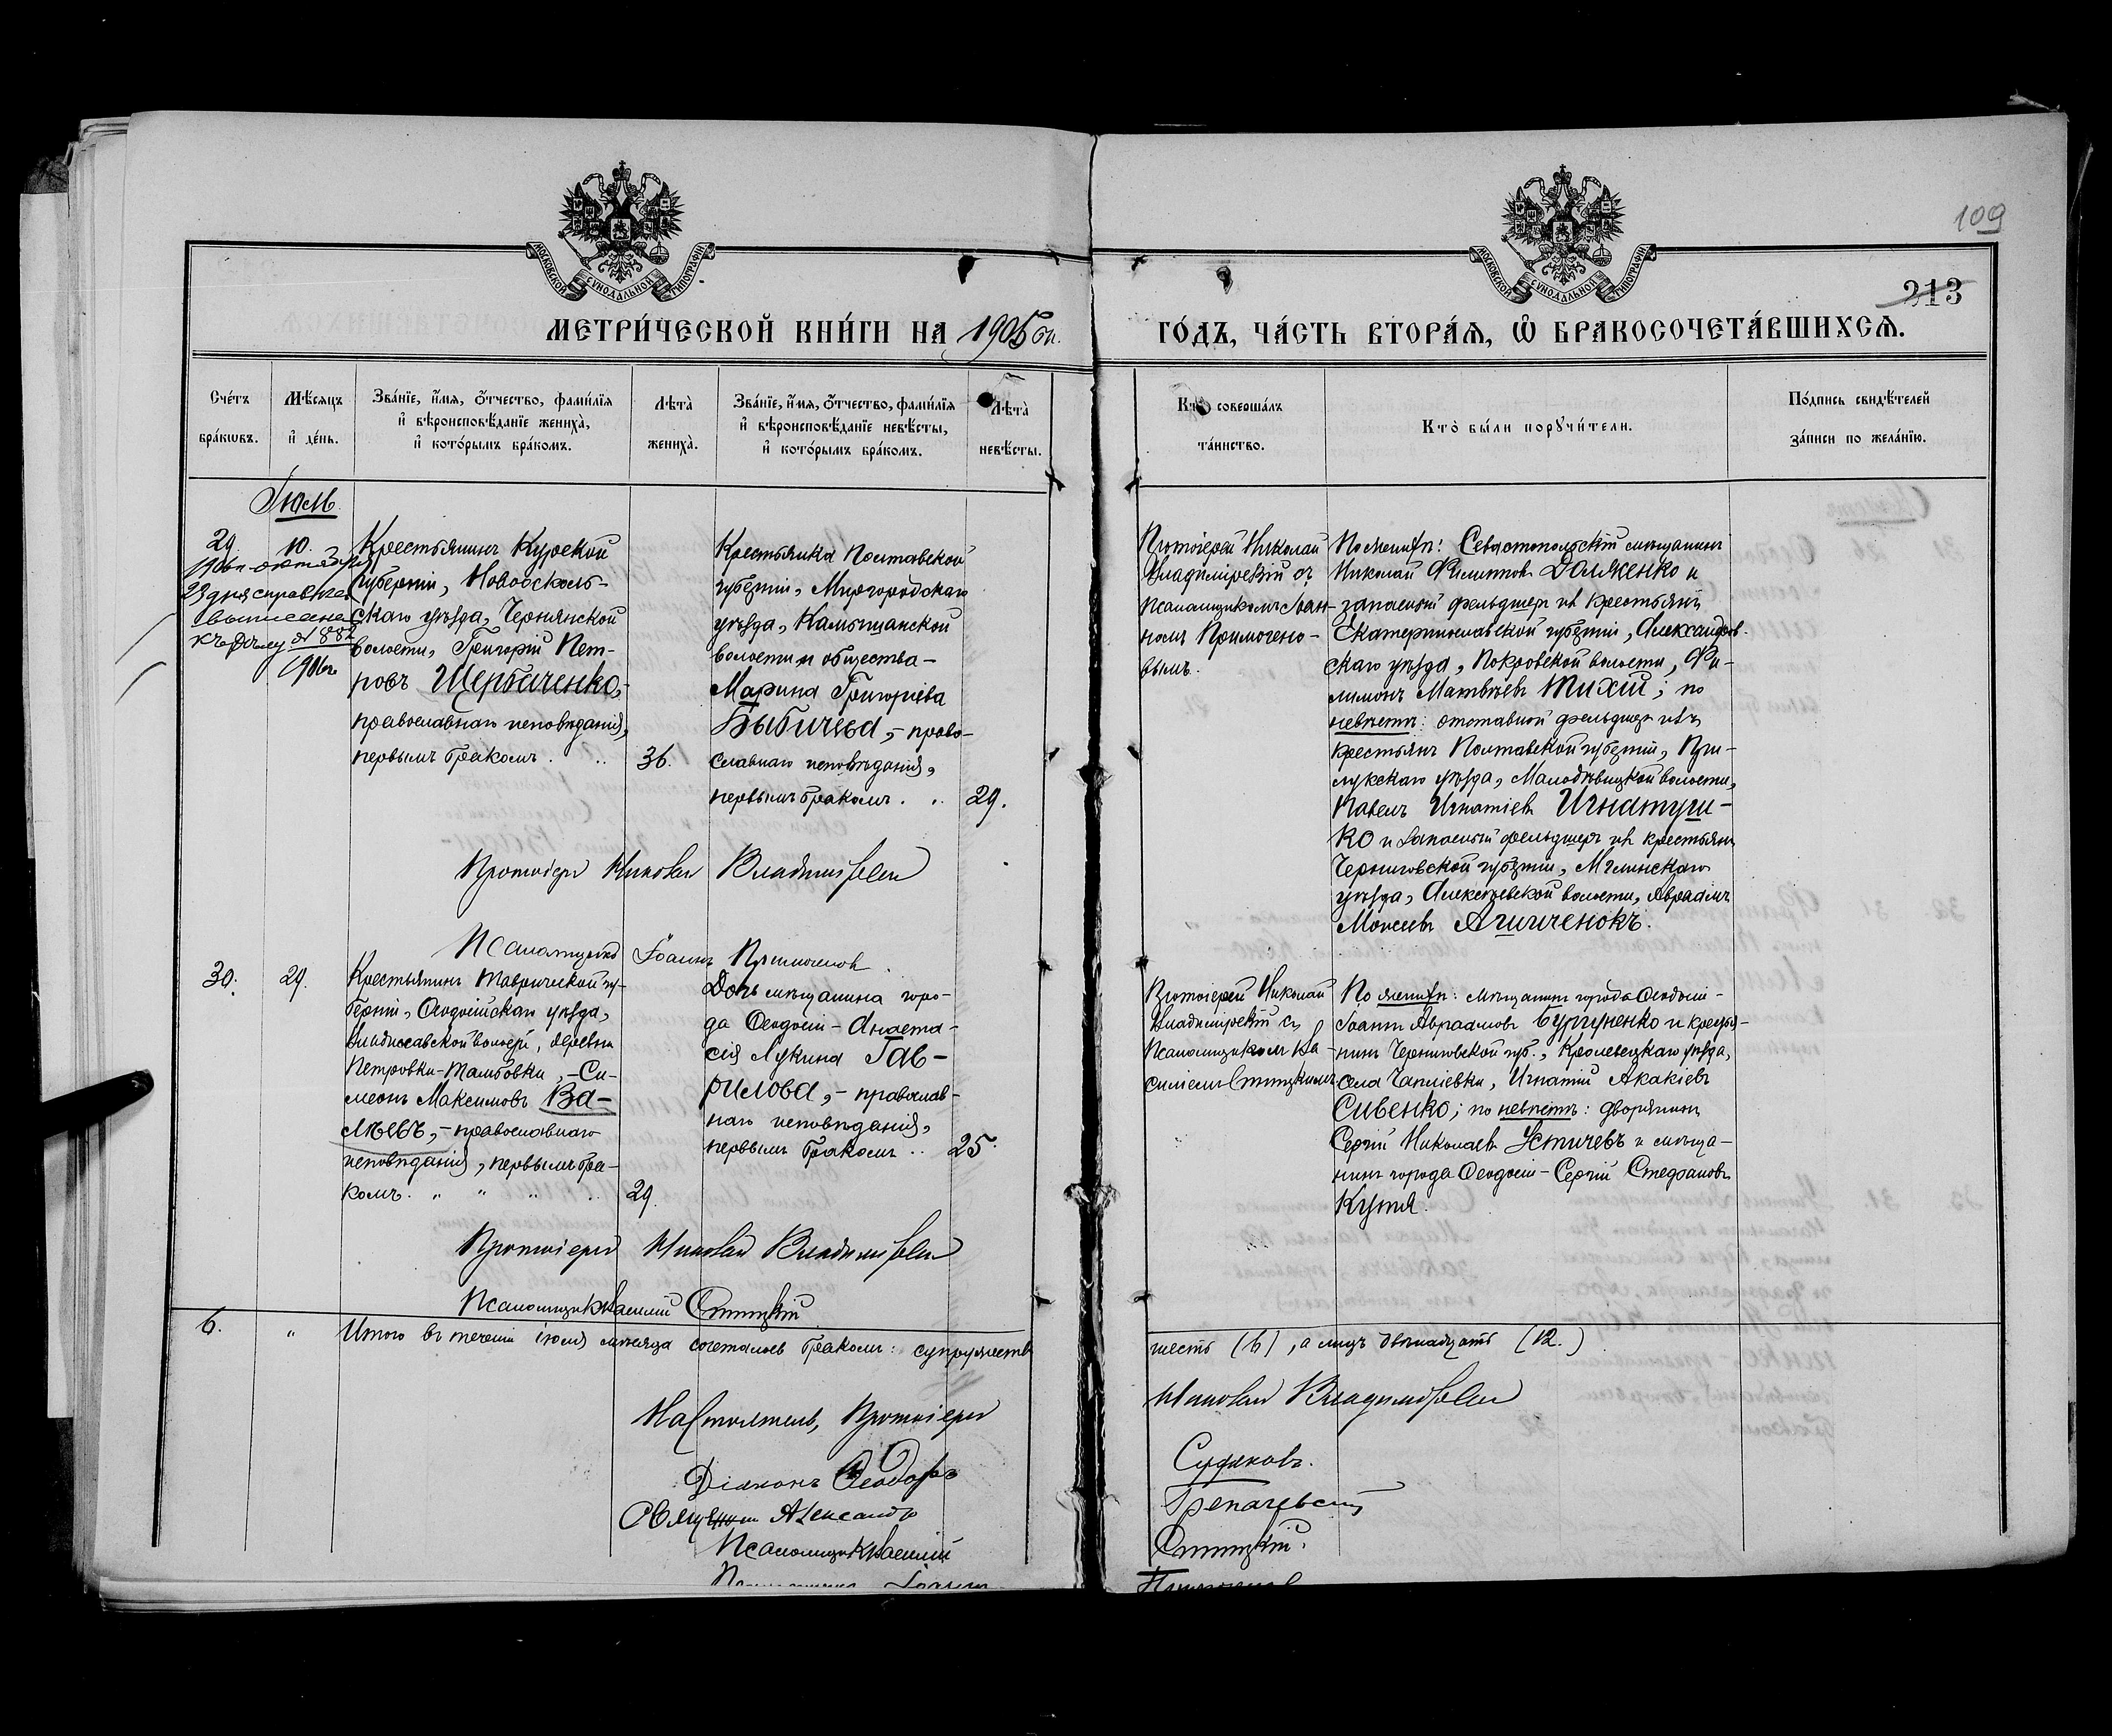 109
213
МОСКОВСКОЙ СѴНОДАЛЬНОЙ ТИПОГРАФІИ
МОСКОВСКОЙ СѴНОДАЛЬНОЙ ТИПОГРАФІИ
МЕТРИ́ЧЕСКОЙ КНИ́ГИ НА 1905й
ГО́ДЪ, ЧА́СТЬ ВТОРА́Я, Ѽ БРАКОСОЧЕТА́ВШИХСЯ.
Сче́тъ бра́кωвъ.
Мѣ́сяцъ и҆ де́нь.
Зва́нїе, и҆́мя, ѻ҆́тчество, фами́лїя
и҆ вѣроисповѣ́данїе жениха̀,
и҆ кото́рымъ бра́комъ.
Лѣ́та̀ жениха̀.
Зва́нїе, и҆́мя, ѻ҆́тчество, фами́лїя
и҆ вѣроисповѣ́данїе невѣ́сты,
и҆ кото́рымъ бра́комъ.
Лѣ́та̀ невѣ́сты.
Кто̀ соверша́лъ та́инство.
Кто̀ бы́ли порꙋчи́тели.
По́дпись свидѣ́телей за́писи по жела́нїю.
Іюль.
29.
10.
октября
23 дня справка
выписана
къ дѣлу № 882
Крестьянинъ Курской
губерніи, Новооскольскаго
уѣзда, Чернянской
волости, Григорій Пет-
ровъ Щербаченко,
православнаго исповѣданія,
первымъ бракомъ.
36.
Крестьянка Полтавской
губерніи, Миргородскаго
уѣзда, Камышанской
волости и общества -
Марина Григоріева
Бибичева, - право-
славнаго исповѣданія,
первымъ бракомъ.
29.
Протоіерей Николай
Владимірскій съ
псаломщикомъ Іоан-
номъ Примогено-
вымъ.
По женихѣ: Севастопольскій мѣщанинъ
Николай Филипповъ Долженко и
запасный фельдшеръ изъ крестьянъ
Екатеринославской губерніи, Александров-
скаго уѣзда, Покровской волости, Фи-
лимонъ Матвѣевъ Тихій; по
невѣстѣ: отставной фельдшеръ изъ
крестьянъ Полтавской губерніи, При-
лукскаго уѣзда, Малодѣвицкой волости,
Павелъ Игнатіевъ Игнатуш-
ко и запасный фельдшеръ изъ крестьянъ
Черниговской губерніи, Мглинскаго
уѣзда, Алексѣевской волости, Авраамъ
Моисеевъ
Протоіерей Николай Владимірскій
Псаломщикъ Іоаннъ Примогеновъ.
30.
29.
Крестьянинъ Таврической гу-
берніи, Ѳеодосійскаго уѣзда,
Владиславской волости, деревни
Петровки-Тамбовки, - Си-
меонъ Максимовъ Ва-
лѣевъ, - православнаго
исповѣданія, первымъ бра-
комъ.
29.
Дочь мѣщанина горо-
да Ѳеодосіи - Анаста-
сія Лукина Гав-
рилова, - православ-
наго исповѣданія,
первымъ бракомъ
25.
Протоіерей Николай
Владимірскій съ
псаломщикомъ Ва-
силіемъ Спицкимъ
По женихѣ: мѣщанинъ города Ѳеодосіи -
Іоаннъ Авраамовъ Бургуненко и крестья-
нинъ Черниговской губ., Кролевецкаго уѣзда,
села Чапліевки, Игнатій Акакіевъ
Сивенко; по невѣстѣ: дворянинъ
Сергій Николаевъ Устичевъ и мѣща-
нинъ города Ѳеодосіи - Сергій Стефановъ
Кутя.
Протоіерей Николай Владимірскій
Псаломщикъ Василій Спицкій
6.
Итого въ теченіи іюля мѣсяца сочеталось бракомъ: супружествъ
шесть (6), а лицъ двѣнадцать (12.)
Настоятель, Протоіерей
Николай Владимірскій
Діаконъ Ѳеодоръ
Судаковъ.
Александръ
Псаломщикъ Василій
Спицкій.